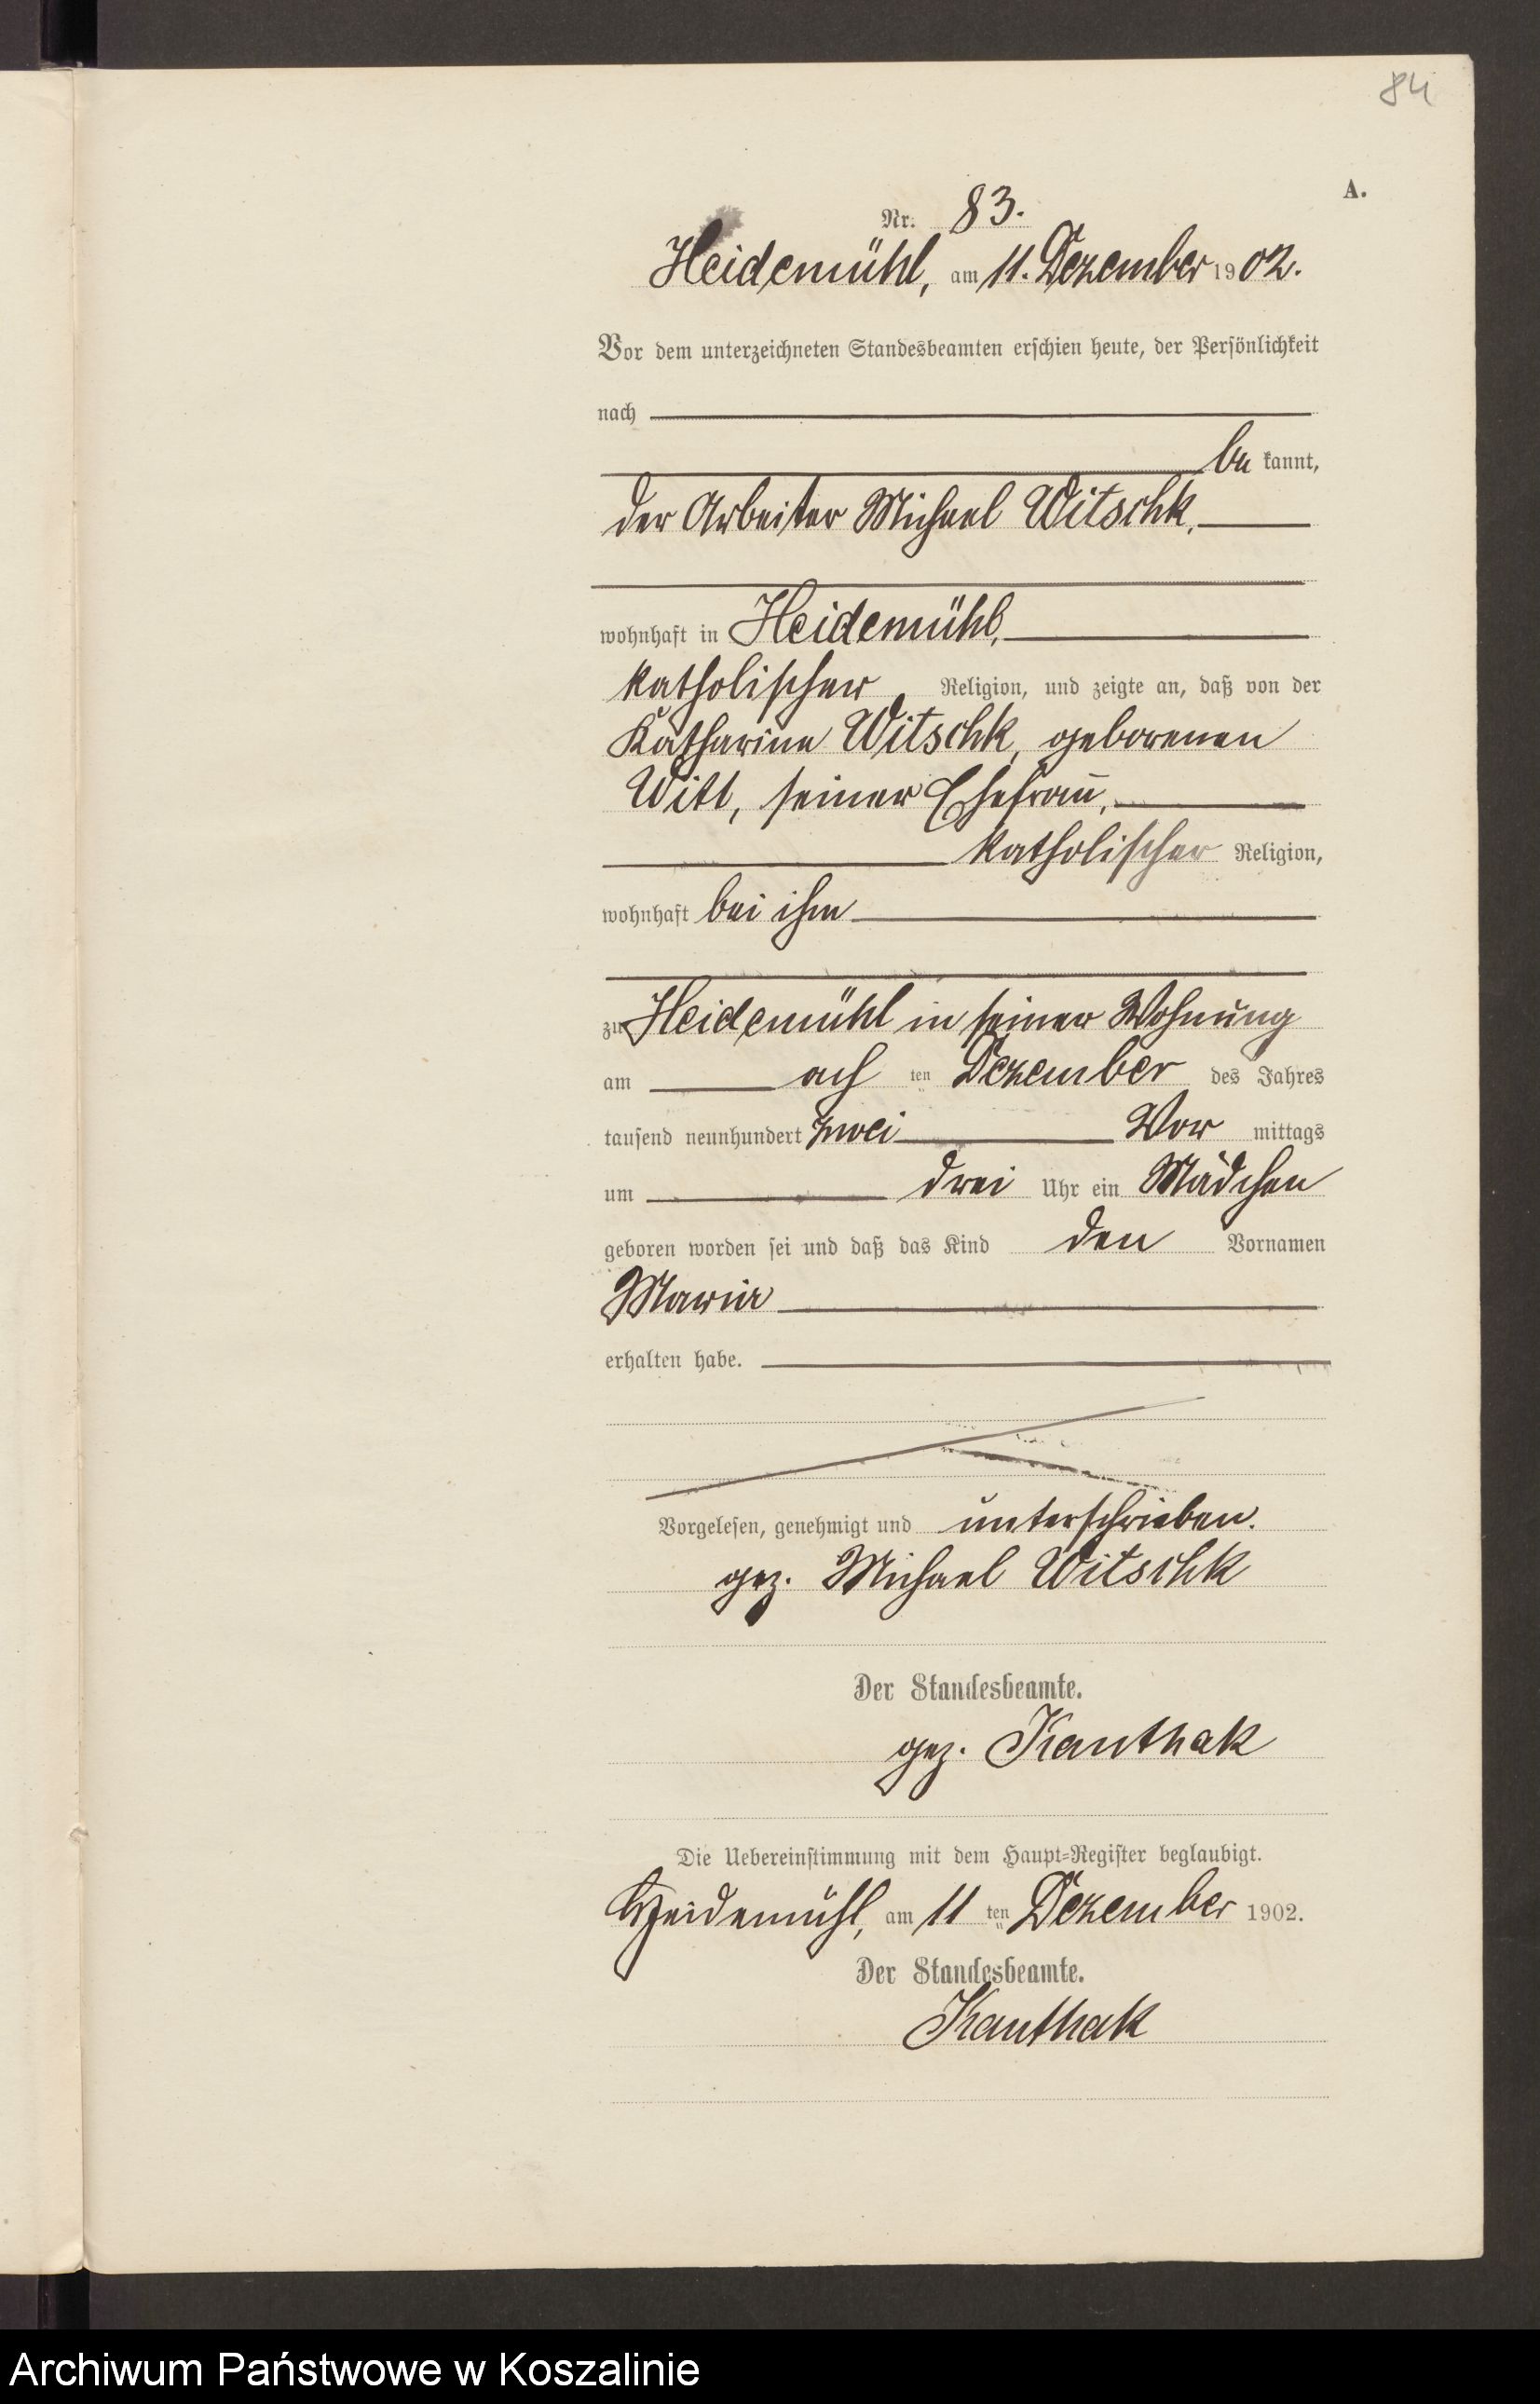 84
A.
Nr. 83.
Heidemühl, am 11. Dezember 1902.
Vor dem unterzeichneten Standesbeamten erschien heute, der Persönlichkeit
nach
be kannt,
der Arbeiter Michael Witschk,
wohnhaft in Heidemühl,
katholischer Religion, und zeigte an, daß von der
Katharina Witschk, geborenen
Witt, seiner Ehefrau,
katholischer Religion,
wohnhaft bei ihm
zu Heidemühl in seiner Wohnung
am ach ten Dezember des Jahres
tausend neunhundert zwei Vor mittags
um drei Uhr ein Mädchen
geboren worden sei und daß das Kind den Vornamen
Maria
erhalten habe.
Vorgelesen, genehmigt und unterschrieben.
gez. Michael Witschk
Der Standesbeamte.
gez. Kanthak
Die Uebereinstimmung mit dem Haupt-Register beglaubigt.
Heidemühl, am 11 ten Dezember 1902.
Der Standesbeamte.
Kanthak
Archiwum Państwowe w Koszalinie